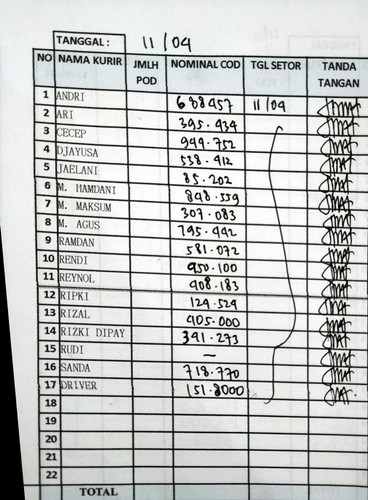 TANGGAL : 11/04
NO NAMA KURIR JMLH POD NOMINAL COD TGL SETOR TANDA TANGAN
1 ANDRI 688457 11/04
2 ARI 395.434
3 CECEP 944.752
4 DJAYUSA 538.412
5 JAELANI 85.202
6 M. HAMDANI 848.559
7 M. MAKSUM 307.083
8 M. AGUS 795.442
9 RAMDAN 581.072
10 RENDI 450.100
11 REYNOL 408.183
12 RIPKI 124.524
13 RIZAL 405.000
14 RIZKI DIPAY 341.273
15 RUDI —
16 SANDA 718.770
17 DRIVER 151.8000
18
19
20
21
22
TOTAL